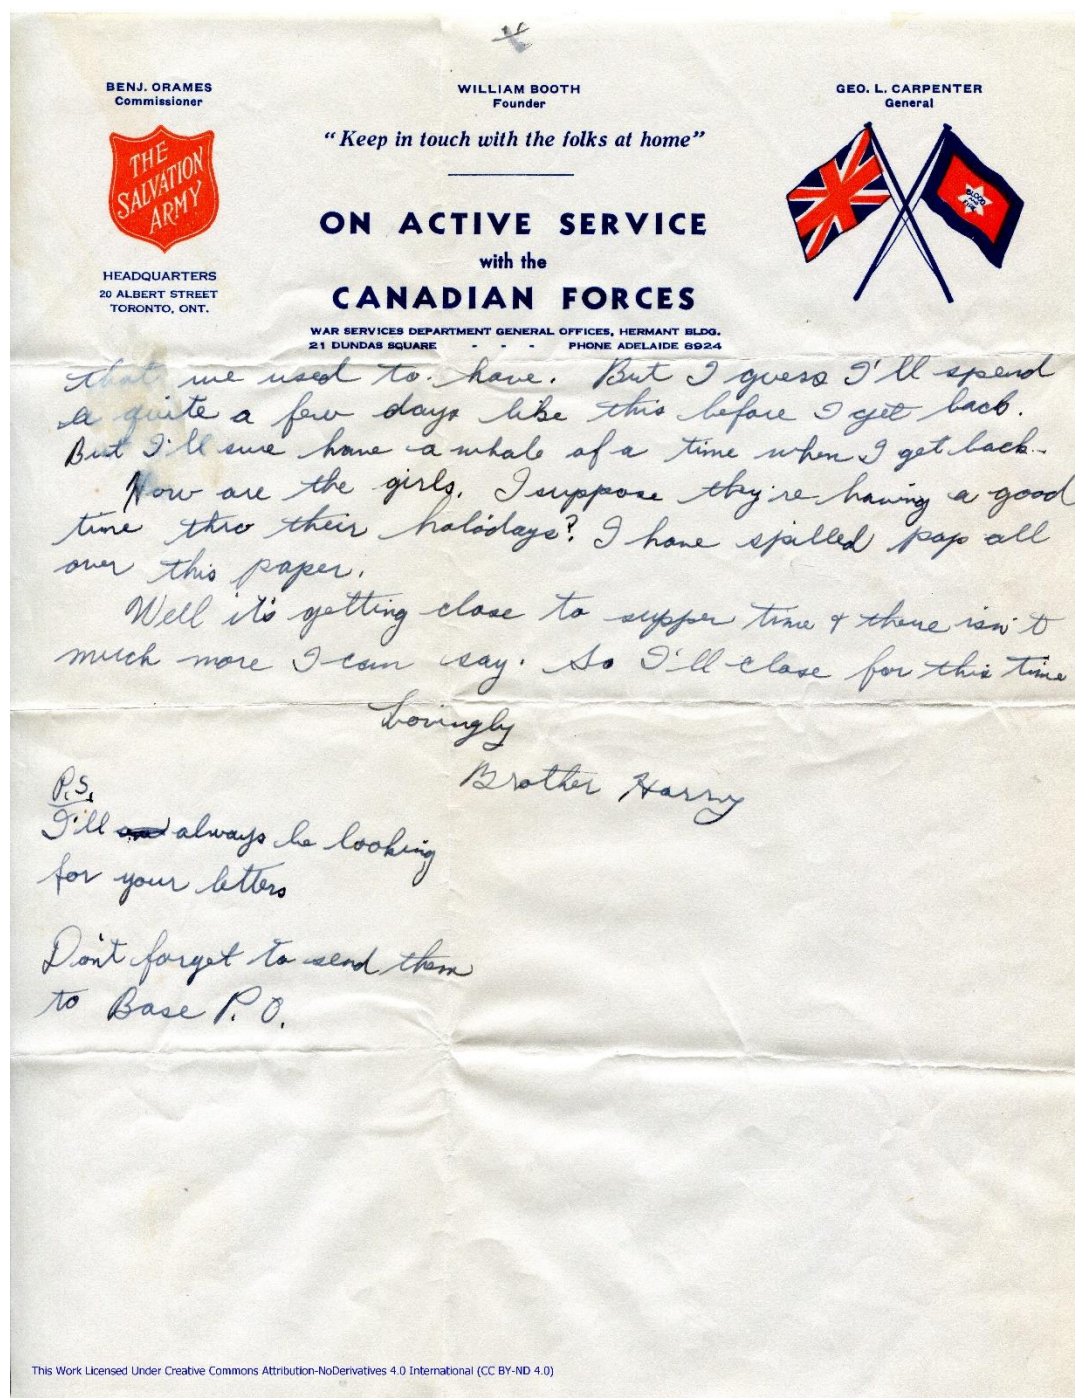 BENJ. ORAMES
Commissioner
THE
SALVATION
ARMY
HEADQUARTERS
20 ALBERT STREET
TORONTO, ONT.
WILLIAM BOOTH
Founder
"Keep in touch with the folks at home"
ON ACTIVE SERVICE
with the
CANADIAN FORCES
WAR SERVICES DEPARTMENT GENERAL OFFICES, HERMANT BLDG.
21 DUNDAS SQUARE - - - PHONE ADELAIDE 8924
GEO. L. CARPENTER
General
BLOOD
AND
FIRE
that we used to have. But I guess I'll spend
a quite a few days like this before I get back.
But I'll sure have a whale of a time when I get back.
How are the girls. I suppose they're having a good
time thro their holodays? I have spilled pop all
over this paper.
Well it's getting close to supper time & there isn't
much more I can say. So I'll close for this time
Lovingly
Brother Harry
P.S.
I'll always be looking
for your letters
Don't forget to send them
to Base P.O.
This Work Licensed Under Creative Commons Attribution-NoDerivatives 4.0 International (CC BY-ND 4.0)